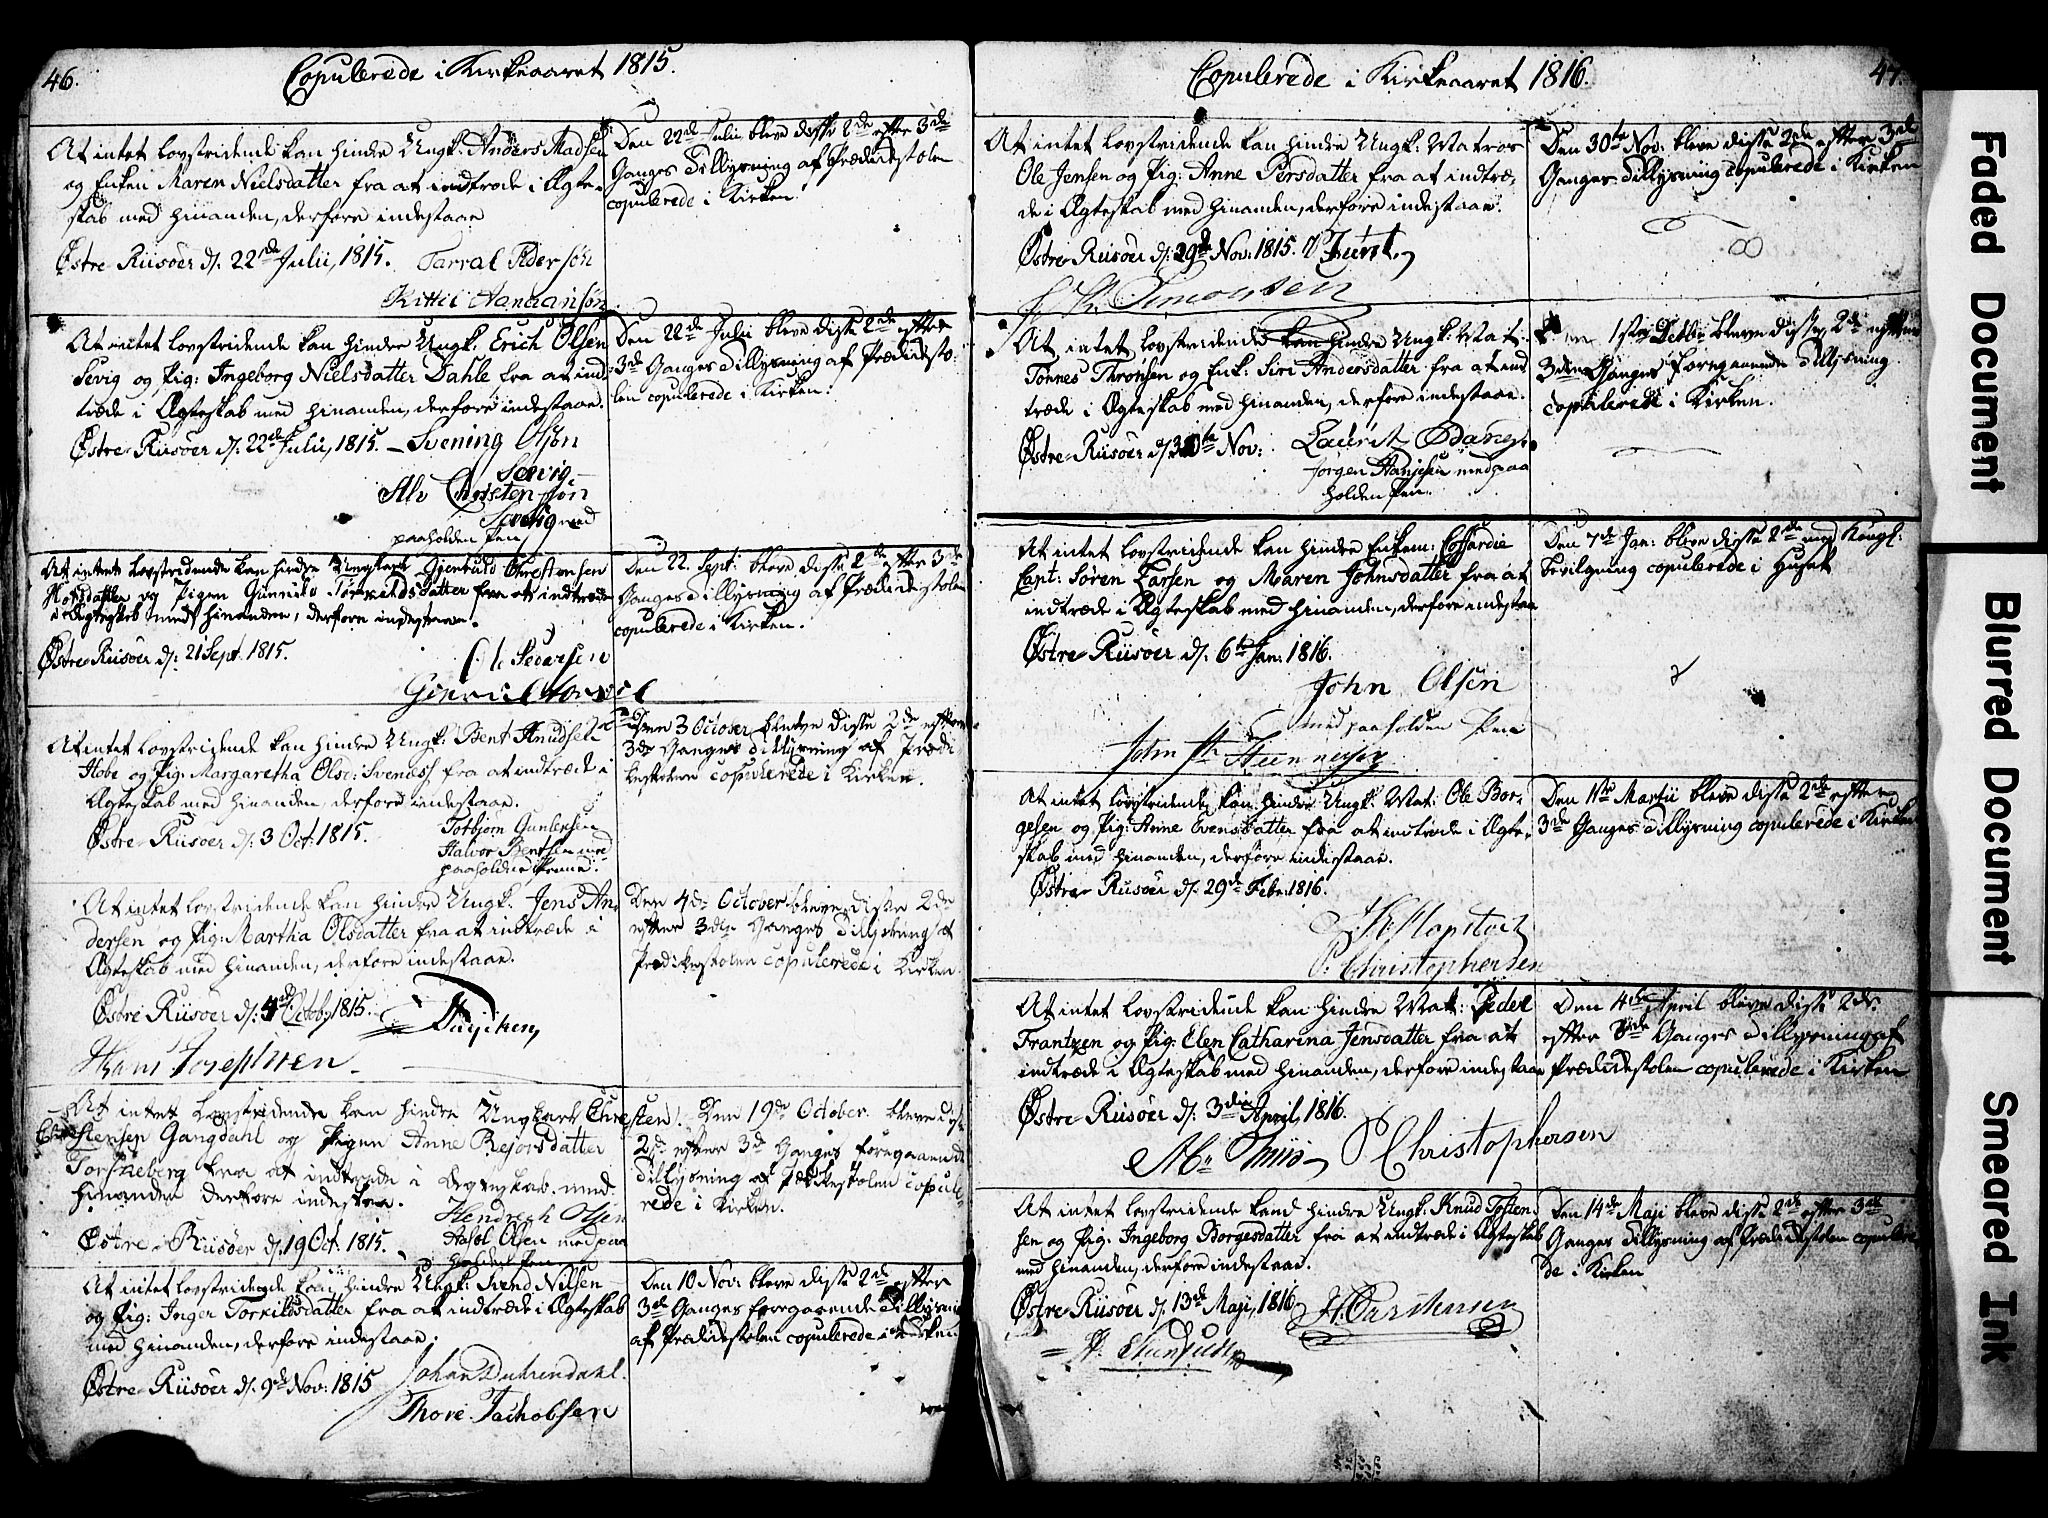 46.
Copulerede i Kirkeaaret 1815.
At intet lovstridende kan hindre Ungk. Anders Madsen
og Enken Maren Nielsdatter fra at indtræde i Ægte-
skab med hinanden, derfore indestaae
Østre Riisøer d. 22de Julii, 1815. Tarral Pedersøn
Kittil
Den 22de Julii bleve disse 2de efter 3de
Ganges Tillysning af Prædikestolen
copulerede i Kirken.
At intet lovstridende kan hindre Ungk. Erich Olsen
Sevig og Pig: Ingeborg Nielsdatter Dahle fra at ind-
træde i Ægteskab med hinanden, derfore indestaae.
Østre Riisøer d. 22de Julii, 1815. Svening Olsøn
Sevig
Alv Christensøn
Sevig med
paaholden Pen
Den 22de Julii bleve disse 2de efter
3de Ganges Tillysning af Prædikesto-
len copulerede i Kirken.
At intet lovstridende kan hindre Ungkarl Gjeruld Christensen
og Pigen Gunnild Tørkeldsdatter fra at indtræde
i Ægteskab med hinanden, derfore indestaae.
Østre Riisøer d. 21 Sept. 1815.
Ole Pedersen
Den 22. Sept: bleve disse 2de efter 3de
Ganges Tillysning af Prædikestolen
copulerede i Kirken.
At intet lovstridende kan hindre Ungk. Bent Knudsen
Hobe og Pig: Margaretha Olsd: Svenæss fra at indtræde i
Ægteskab med hinanden, derfore indestaae.
Østre Riisøer d. 3 Oct. 1815.
Torbjørn Gunlersen
Halvor Bentsen med
paaholden Penne.
Den 3 October bleve disse 2de efter
3de Ganges Tillysning af Prædi
kestolen copulerede i Kirken.
At intet lovstridende kan hindre Ungk. Jens An-
dersen og Pig: Martha Olsdatter fra at indtræde i
Ægteskab med hinanden, derfore indestaae.
Østre Riisøer d. 4de Octob, 1815.
Hans Josephsen.
Den 4de October bleve disse 2de
efter 3die Ganges Tillysning af
Prædikestolen copulerede i Kirken.
At intet lovstridende kan hindre Ungkarl Chre
stensen Gangdahl og Pigen Anne Rejorsdatter
Torskeberg fra at indtræde i Ægteskab med
hinanden derfore indestaae.
Hendrich Olsen
Østre Riisøer d. 19 Oct. 1815.
Olsen med paa
holden Pen
Den 19de October bleve diss
2de efter 3de Ganges foregaaende
Tillysning af Prædikestolen copule-
rede i Kirken.
At intet lovstridende kan hindre Ungk. Svend Nilsen
og Pig: Inger Torkildsdatter fra at indtræde i Ægteskab
med hinanden, derfore indestaae.
Østre Riisøer d. 9de Nov: 1815
Johan Duhrendahl.
Thore Jachobsen
Den 10 Nov: bleve disse 2de efter
3de Ganges foregaaende Tillysning
af Prædikestolen copulerede i Kirken
47.
Copulerede i Kirkeaaret 1816.
At intet lovstridende kan hindre Ungk: Matros
Ole Jensen og Pig: Anne Persdatter fra at indtræ-
de i Ægteskab med hinanden, derfore indestaae.
Østre Riisøer d. 29de Nov: 1815.
Simonsen
Den 30te Nov: bleve disse 2de efter 3de
Ganges Tillysning copulerede i Kirken
At intet lovstridende kan hindre Ungk: Mat:
Tønnes Thronsen og Enk: Siri Andersdatter fra at ind
træde i Ægteskab med hinanden, derfore indestaae.
Østre Riisøer d. 30te Nov: Laurit
Jørgen Hansen med paa
holden Pen.
1ste Decbr bleve disse 2de efter
3die Ganges foregaaende Tillysning
copulerede i Kirken.
At intet lovstridende kan hindre Enkem: Coffardie
Capt: Søren Larsen og Maren Johnsdatter fra at
indtræde i Ægteskab med hinanden, derfore indestaae
Østre Riisøer d. 6te Jan: 1816.
John Olsen
med paaholden Pen
Den 7de Jan: bleve disse 2de med Kongl:
bevilgning copulerede i Huset
At intet lovstridende kan hindre Ungk. Mat: Ole Bor-
gesen og Pig: Anne Evensdatter fra at indtræde i Ægte-
skab med hinanden, derfore indestaae.
Østre Riisøer d. 29de Febr: 1816.
P. Christophersen
Den 1te Martii bleve disse 2de efter
3de Ganges Tillysning copulerede i Kirken
At intet lovstridende kan hindre Mat: Peder
Frantzen og Pig: Elen Catharina Jensdatter fra at
indtræde i Ægteskab med hinanden, derfore indestaae
Østre Riisøer d. 3die April, 1816.
P Christophersen
Den 4de April bleve disse 2de
efter 3de Ganges Tillysning af
Prædikestolen copulerede i Kirken
At intet lovstridende kand hindre Ungk: Knud Tosten-
sen og Pig: Ingeborg Borgesdatter fra at indtræde i Ægteskab
med hinanden, derfore indestaae.
Østre Riisøer d. 13de Maji, 1816 Carstensen
Den 14de Maji bleve disse 2de efter 3de
Ganges Tillysning af Prædikestolen copulere
de i Kirken
Faded Document
Blurred Document
Smeared Ink